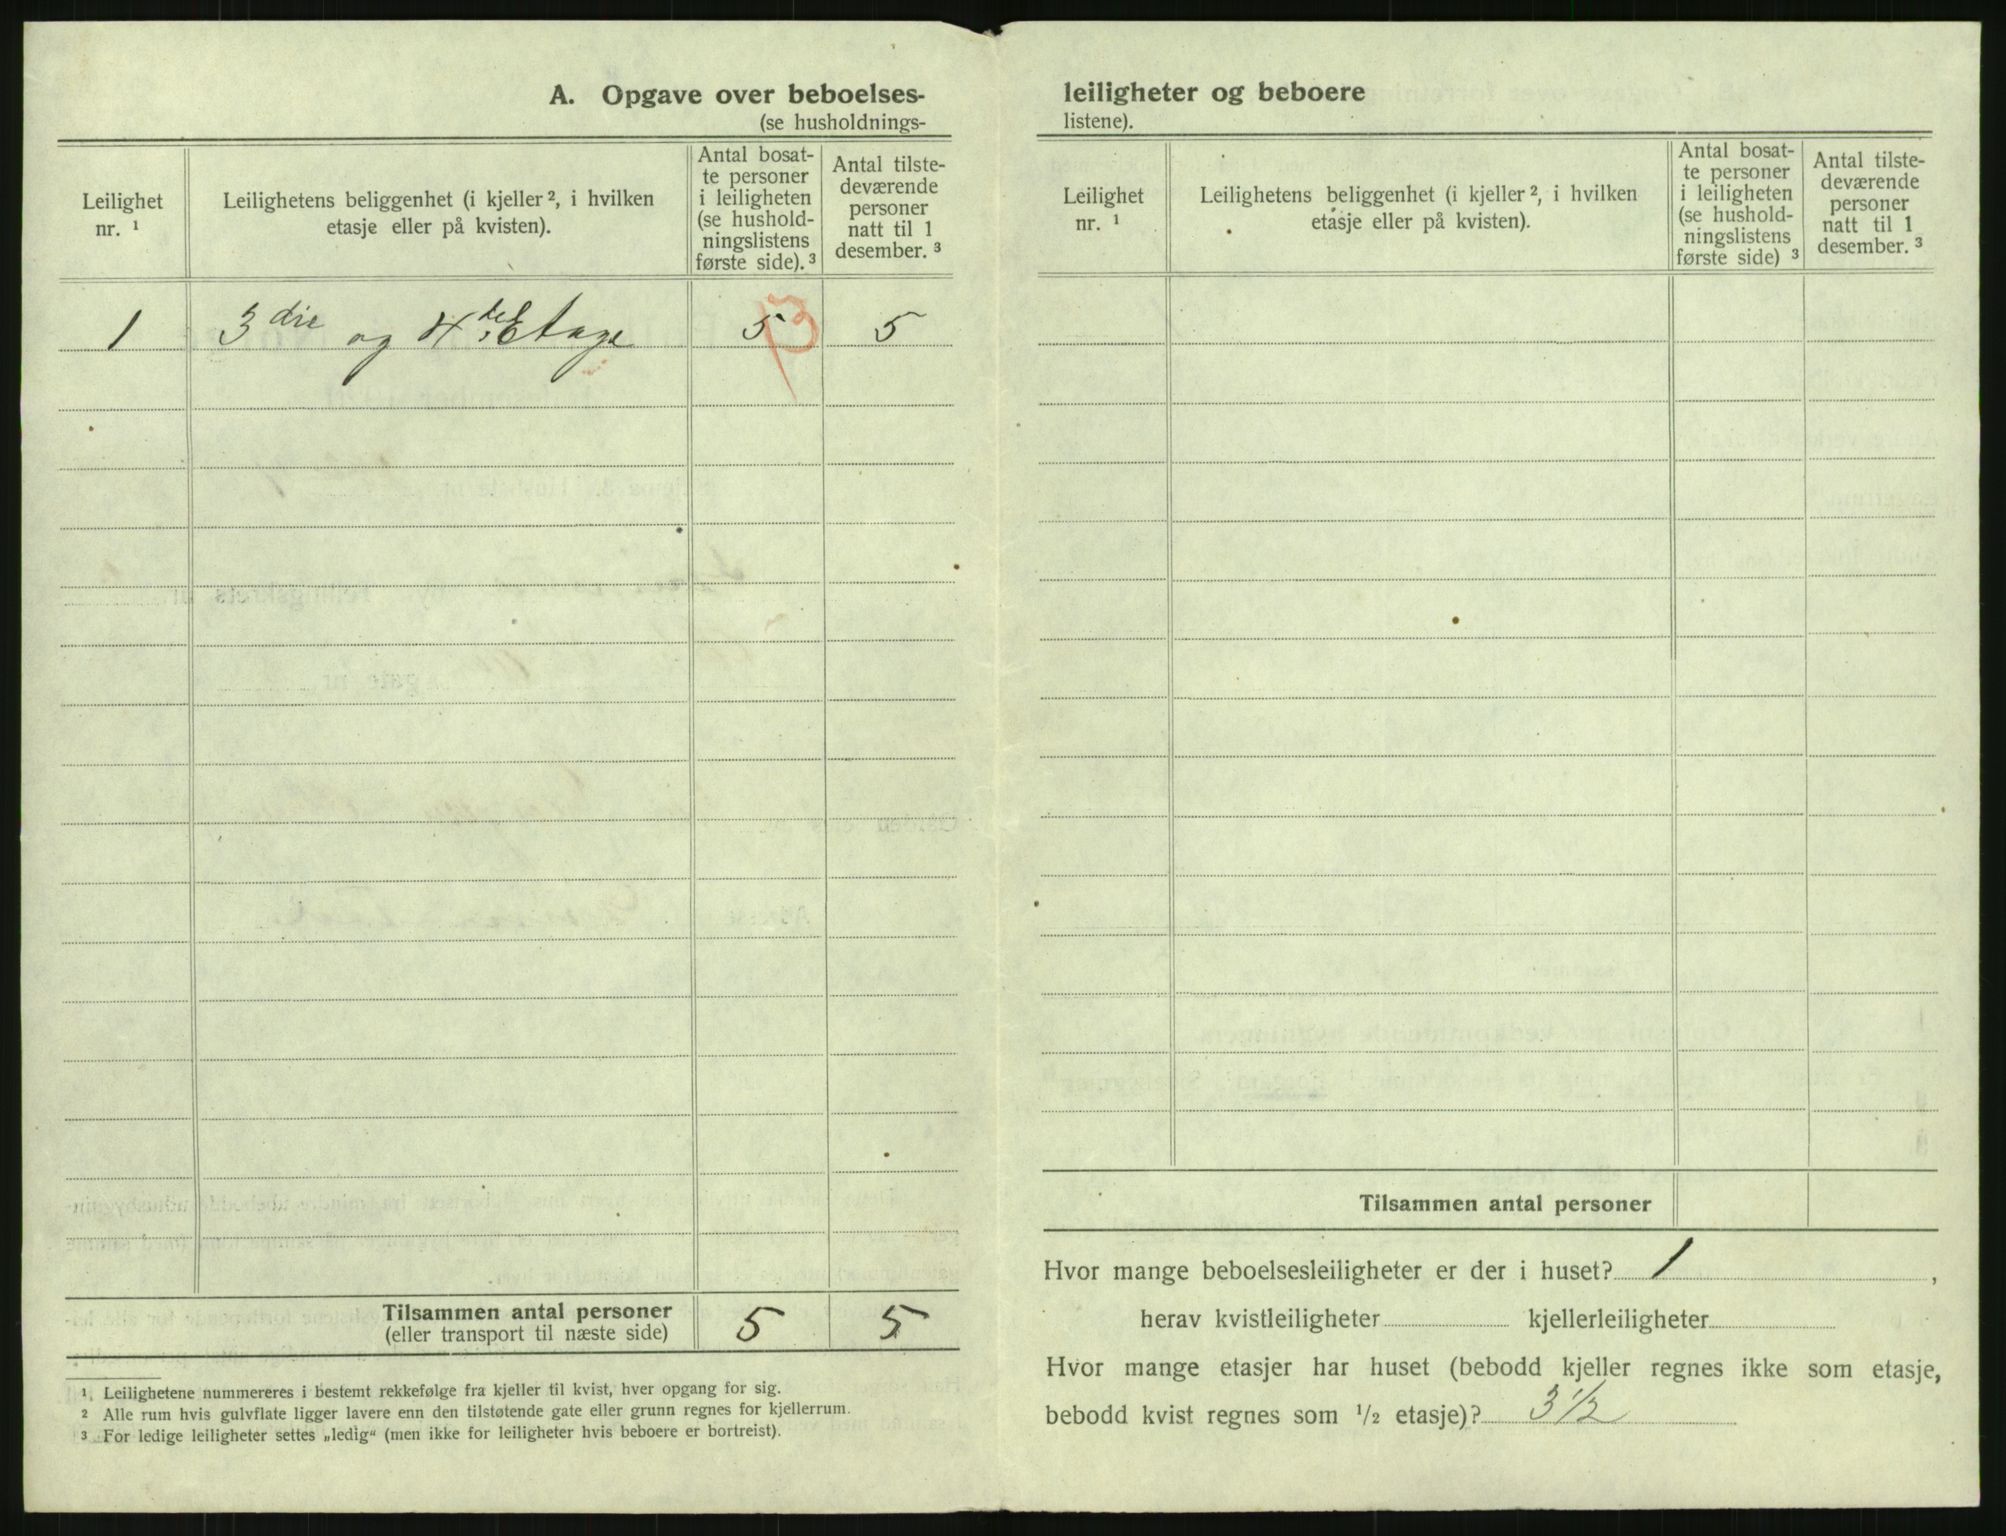 A. Opgave over beboelses-
(se husholdnings-
Leilighet
nr. ¹
Leilighetens beliggenhet (i kjeller ², i hvilken
etasje eller på kvisten).
Antal bosat-
te personer
i leiligheten
(se hushold-
ningslistens
første side). ³
Antal tilste-
deværende
personer
natt til 1
desember. ³
1 3 die og 4 de Etage 5 3 5
Tilsammen antal personer 5 5
(eller transport til næste side)
¹ Leilighetene nummereres i bestemt rekkefølge fra kjeller til kvist, hver opgang for sig.
² Alle rum hvis gulvflate ligger lavere enn den tilstøtende gate eller grunn regnes for kjellerrum.
³ For ledige leiligheter settes „ledig“ (men ikke for leiligheter hvis beboere er bortreist).
leiligheter og beboere
listene).
Leilighet
nr. ¹
Leilighetens beliggenhet (i kjeller ², i hvilken
etasje eller på kvisten).
Antal bosat-
te personer
i leiligheten
(se hushold-
ningslistens
første side) ³
Antal tilste-
deværende
personer
natt til 1
desember. ³
Tilsammen antal personer
Hvor mange beboelsesleiligheter er der i huset? 1 ,
herav kvistleiligheter kjellerleiligheter
Hvor mange etasjer har huset (bebodd kjeller regnes ikke som etasje,
bebodd kvist regnes som ¹/₂ etasje)? 3 1/2